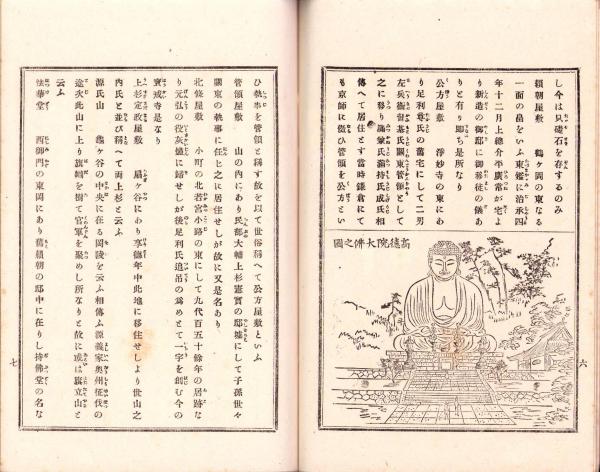 し今は只礎石を存するのみ
頼朝屋敷　鶴ヶ岡の東なる
一面の畠をいふ東鑑に治承四
年十二月上總介平廣常が宅よ
り新造の御邸に御移徙の儀あ
りと有り即ち是所なり
公方屋敷　淨妙寺の東にあ
り足利尊氏の舊宅にして二男
左兵衛督基氏關東管領として
之に移り氏滿兼持氏成氏相
傳へて居住とす當時鎌倉にて
も京師に傚ひ管領を公方とい
高德院大佛之圖
六
ひ執事を管領と稱す故を以て世俗稱へて公方屋敷といふ
管領屋敷　山の内にあり民部大輔上杉憲實の邸墟にして子孫世々
關東の執事に任じ之に居住せしが故に又是名あり
北條屋敷　小町の北若宮小路の東にして九代百五十餘年の居跡な
り元弘の役灰燼に歸せしが後足利氏追吊の爲めとて一宇を創む今の
寶戒寺是なり
上杉定政屋敷　扇ヶ谷にあり享德年中此地に移住せしより世山之
内氏と並び稱へて兩上杉と云ふ
源氏山　龜ヶ谷の中央に在る岡陵を云ふ相傳ふ源義家奥州征伐の
途次此山に上り旗幟を樹て官軍を聚めし所なりと故に或は旗立山と
云ふ
法華堂　西御門の東岡にあり舊頼朝の邸中に在りし持佛堂の名な
七